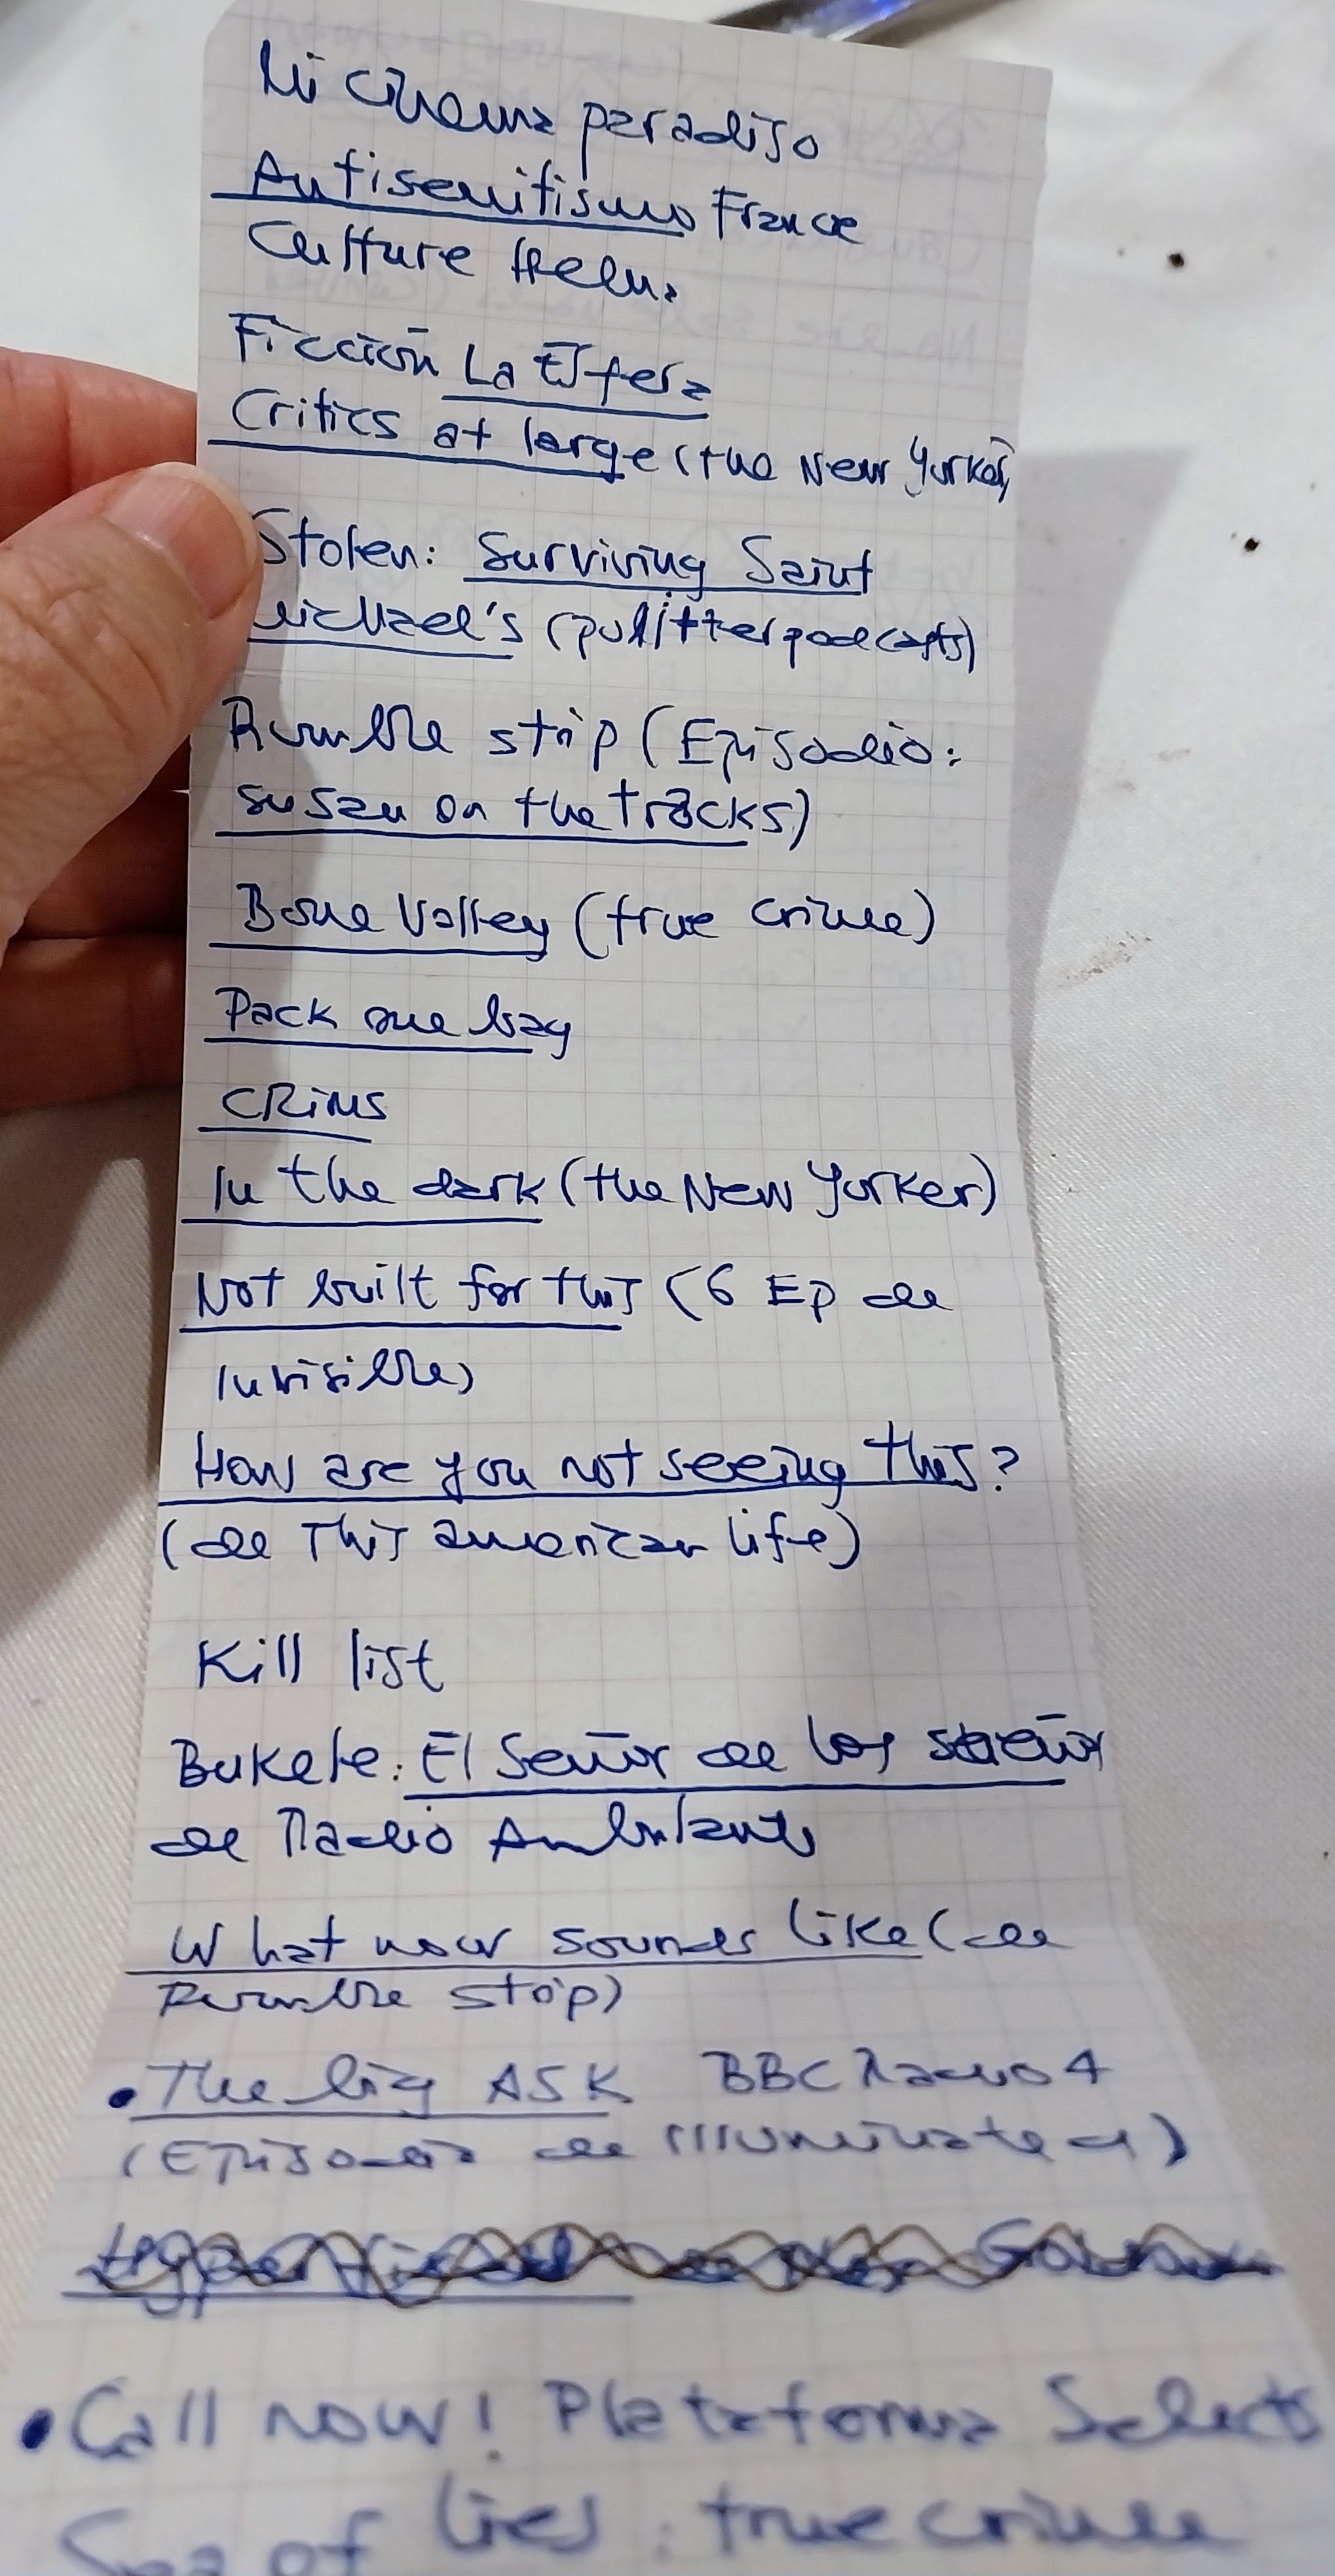 Mi cinema paradiso
Antisemitismo France
Culture
Ficción La Esfera
Critics at large (the New Yorker)
Stolen: Surviving Saint
Michael's (pulitter podcasts)
Rumble strip (Episodio:
susan on the tracks)
Bone Valley (true crime)
Pack one bag
CRIMS
In the dark (the New Yorker)
Not built for this (6 Ep de
Invisible)
How are you not seeing this?
(de This american life)
Kill list
Bukele: El Señor de los
de Radio Ambulante
What now sounds like (de
Rumble strip)
• The big ASK BBC Radio 4
(Episodio de Illuminated)
• Call now! Plataforma Selects
Sea of lies: true crime